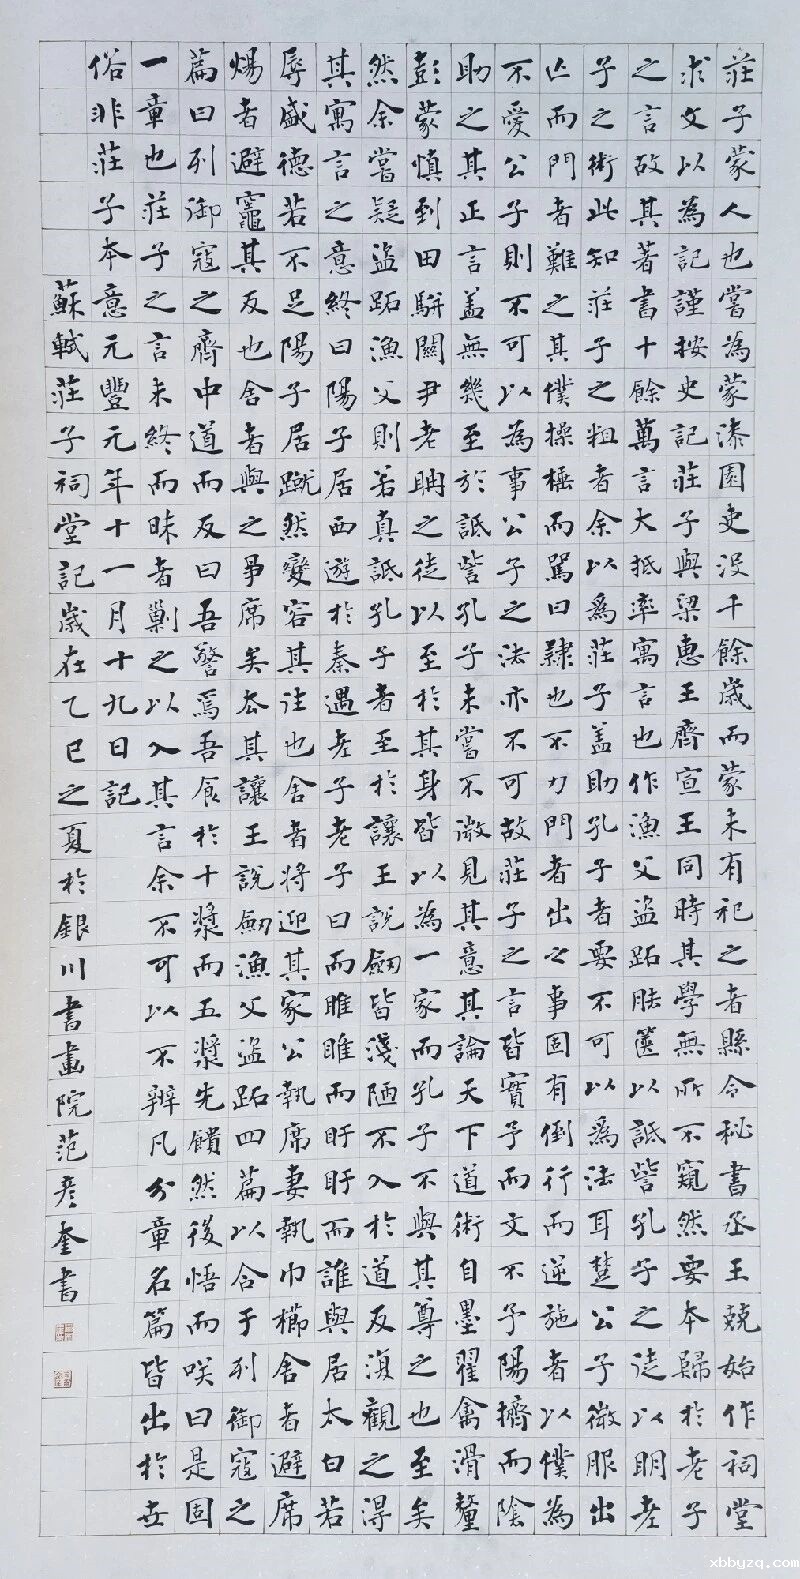 莊子蒙人也嘗為蒙漆園吏没千餘歲而蒙未有祀之者縣令秘書丞王兢始作祠堂
求文以為記謹按史記莊子與梁惠王齊宣王同時其學無所不窺然要本歸於老子
之言故其著書十餘萬言大抵率寓言也作漁父盜跖胠篋以詆訾孔子之徒以明老
子之術此知莊子之粗者余以爲莊子蓋助孔子者要不可以爲法耳楚公子微服出
亡而門者難之其僕操棰而罵曰隸也不力門者出之事固有倒行而逆施者以僕為
不愛公子則不可以為事公子之法亦不可故莊子之言皆實予而文不予陽擠而陰
助之其正言蓋無幾至於詆訾孔子未嘗不微見其意其論天下道術自墨翟禽滑釐
彭蒙慎到田駢關尹老聃之徒以至於其身皆以為一家而孔子不與其尊之也至矣
然余嘗疑盜跖漁父則若真詆孔子者至於讓王說劒皆淺陋不入於道反復觀之得
其寓言之意終曰陽子居西遊於秦遇老子老子曰而睢睢而盱盱而誰與居太白若
辱盛德若不足陽子居蹴然變容其往也舍者將迎其家公執席妻執巾櫛舍者避席
煬者避竈其反也舍者與之爭席矣去其讓王說劒漁父盜跖四篇以合于列御寇之
篇曰列御寇之齊中道而反曰吾驚焉吾食於十漿而五漿先饋然後悟而咲曰是固
一章也莊子之言未終而昧者剿之以入其言余不可以不辨凡分章名篇皆出於世
俗非莊子本意元豐元年十一月十九日記
蘇軾莊子祠堂記歲在乙巳之夏於銀川書畫院范彥奎書
xbbyzq.com